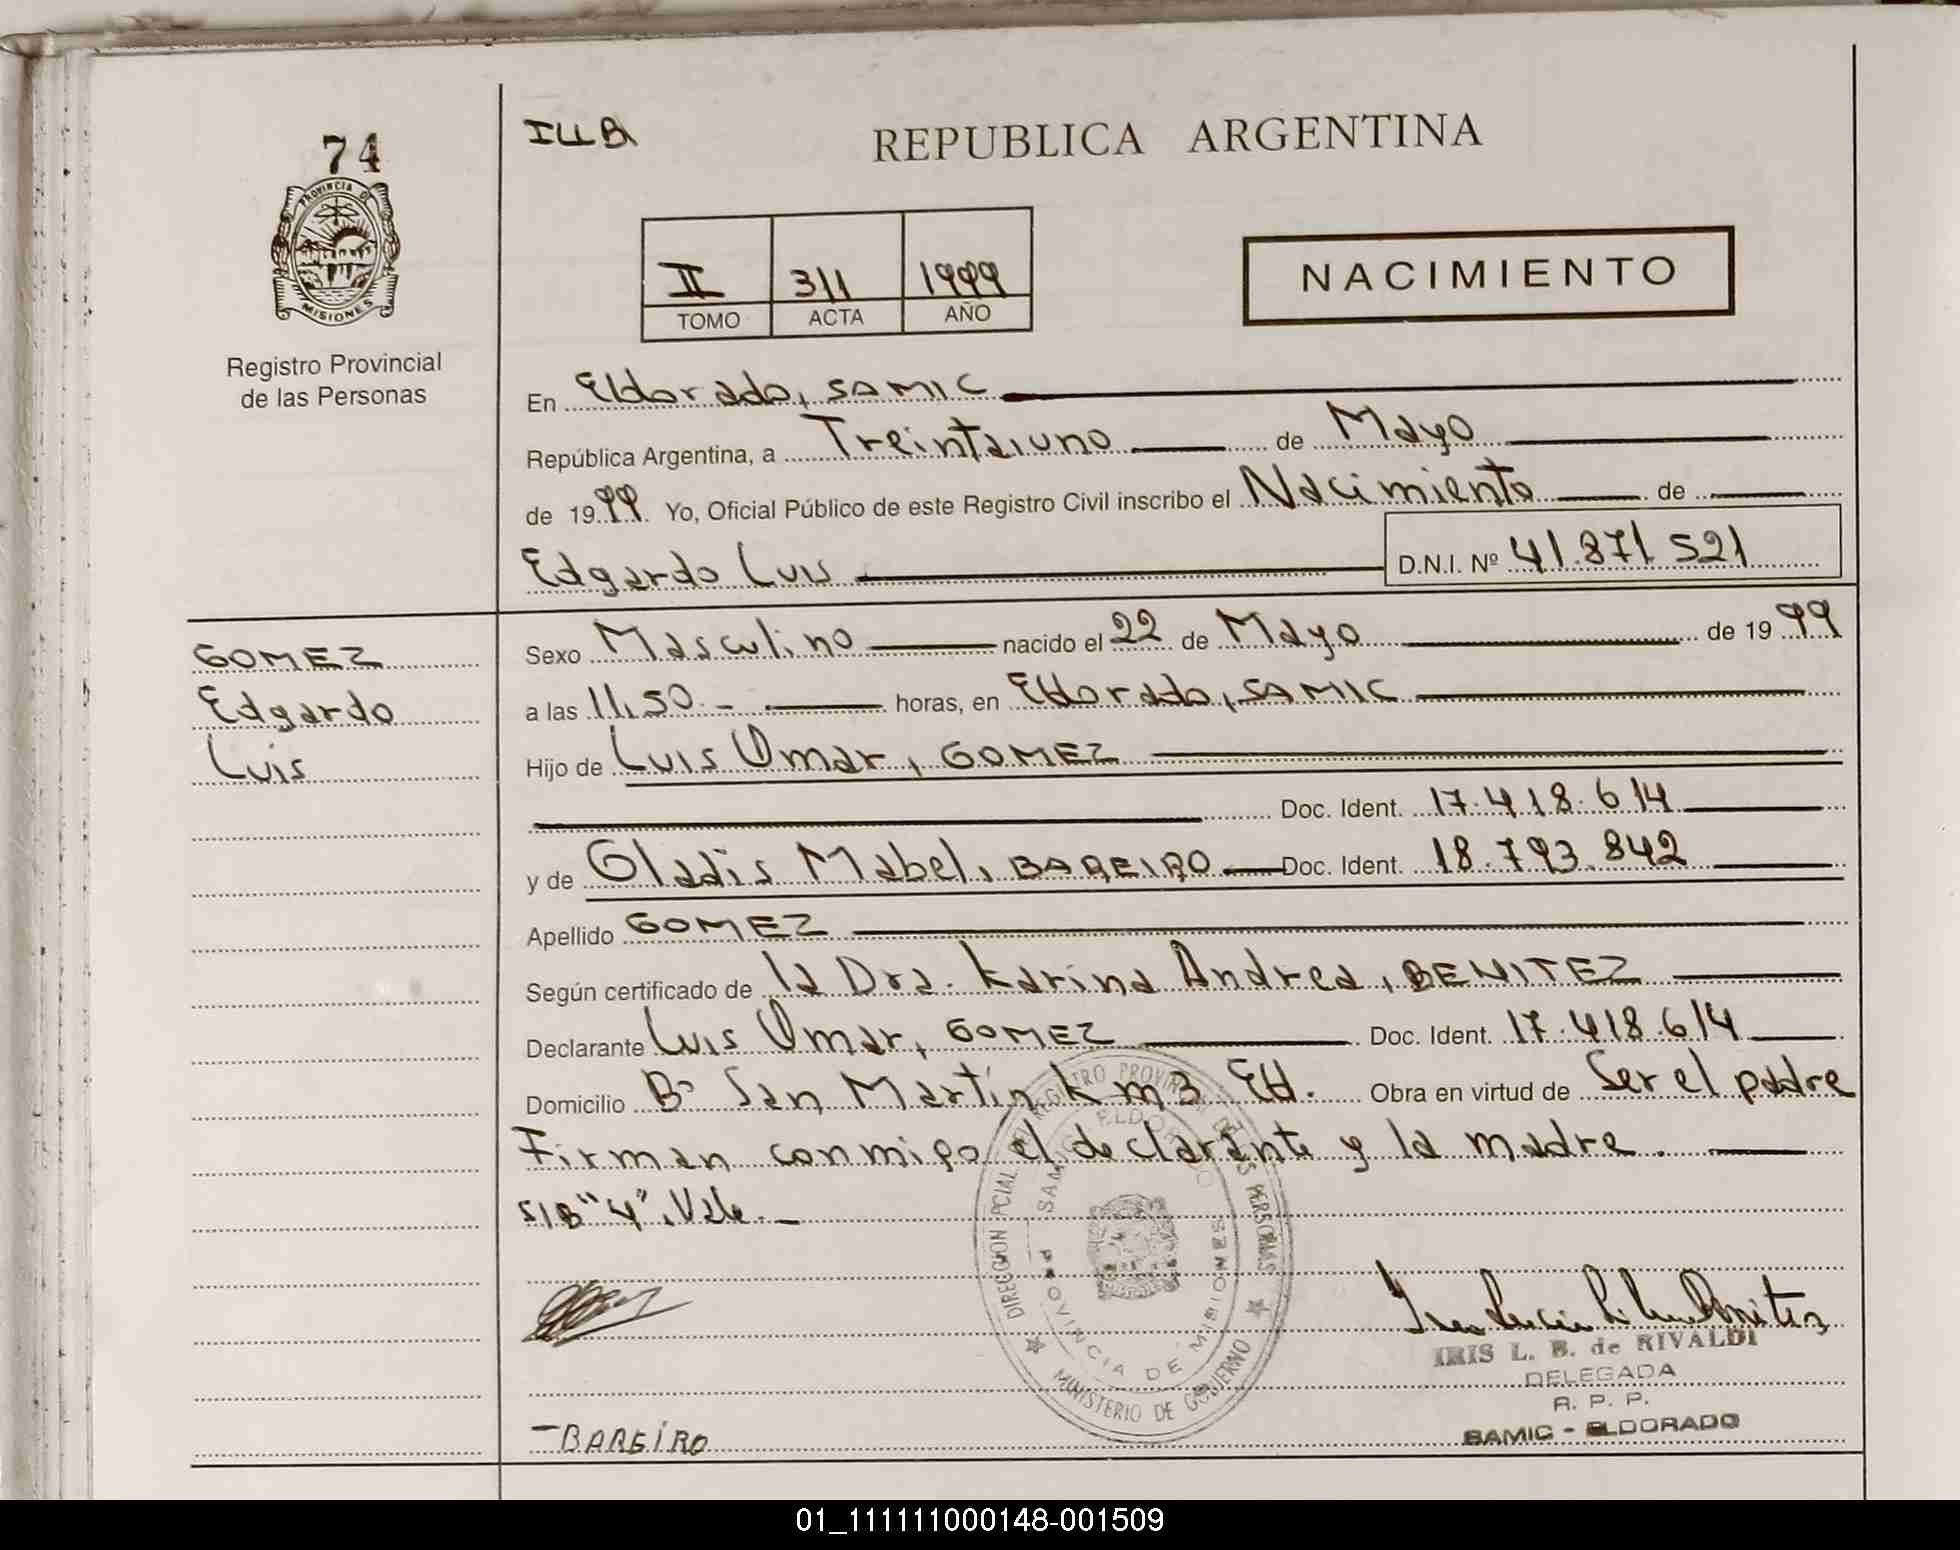 74
PROVINCIA DE
MISIONES
Registro Provincial
de las Personas
ILLB
REPUBLICA ARGENTINA
II 311 1999
TOMO ACTA AÑO
NACIMIENTO
En Eldorado, SAMIC
República Argentina, a Treintaiuno de Mayo
de 1999 Yo, Oficial Público de este Registro Civil inscribo el Nacimiento de
Edgardo Luis D.N.I. Nº 41.871.521
GOMEZ
Edgardo
Luis
Sexo Masculino nacido el 22 de Mayo de 1999
a las 11,50.- horas, en Eldorado, SAMIC
Hijo de Luis Omar, GOMEZ
Doc. Ident. 17.418.614
y de Gladis Mabel, BAREIRO Doc. Ident. 18.793.842
Apellido GOMEZ
Según certificado de la Dra. Karina Andrea, BENITEZ
Declarante Luis Omar, GOMEZ Doc. Ident. 17.418.614
Domicilio Bº San Martín Km 3 Eld. Obra en virtud de Ser el padre
Firman conmigo el declarante y la madre.
S/B "4". Vale.-
DIRECCION PCIAL DEL REGISTRO PROVINCIAL DE LAS PERSONAS
SAMIC ELDORADO
PROVINCIA DE MISIONES
MINISTERIO DE GOBIERNO
IRIS L. B. de RIVALDI
DELEGADA
R. P. P.
SAMIC - ELDORADO
BAREIRO
01_111111000148-001509